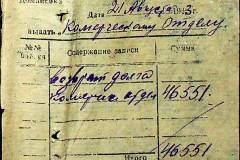 Дата 21 Августа 193 г.
выдать Комерческому Отделу
№№ Содержание записи Сумма
возврат долга
Комерч. отдел 46551
46551
Итого